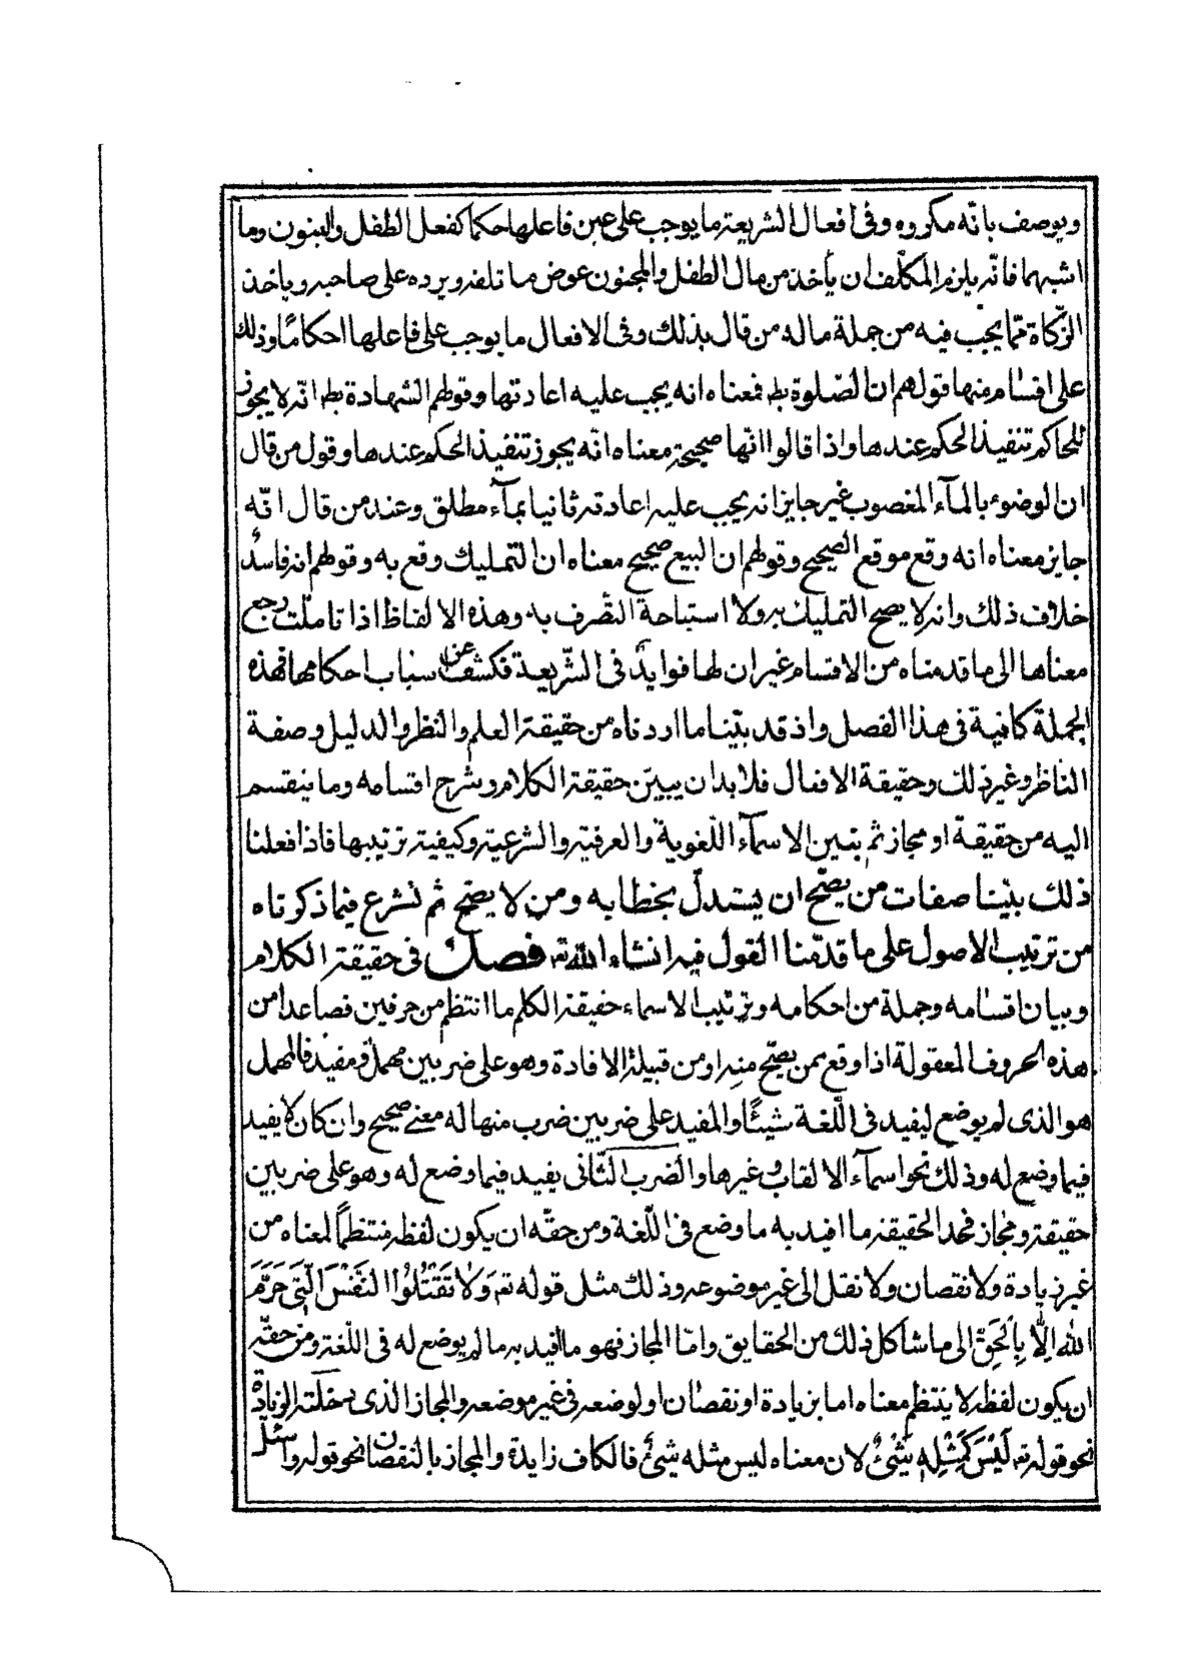 ويوصف بانّه مكروه وفى افعال الشريعة ما يوجب على عين فاعلها حكما كفعل الطفل والمجنون وما
اشبههما فانّه يلزم المكلّف ان يأخذ من مال الطفل والمجنون عوض ما تلفه ويرده على صاحبه وياخذ
الزّكاة ممّا يجب فيه من جملة ماله من قال بذلك وفى الافعال ما يوجب على فاعلها احكامًا وذلك
على اقسام منها قولهم ان الصّلوة بط فمعناه انه يجب عليه اعادتها وقولهم الشهادة بط انّه لا يجوز
للحاكم تنفيذ الحكم عندها واذا قالوا انّها صحيحة معناه انّه يجوز تنفيذ الحكم عندها وقول من قال
ان الوضوء بالمآء المغصوب غير جايز انه يجب عليه اعادته ثانيا بمآء مطلق وعند من قال انّه
جايز معناه انه وقع موقع الصحيح وقولهم ان البيع صحيح معناه ان التمليك وقع به وقولهم انه فاسدٌ
خلاف ذلك وانه لا يصح التمليك به ولا استباحة التصّرف به وهذه الالفاظ اذا تاملّت رجع
معناها الى ما قدمناه من الاقسام غير ان لها فوايد فى الشّريعة فكشف عن سباب احكامها فهذه
الجملة كافية فى هذا الفصل واذ قد بيّنا ما اردناه من حقيقة العلم والنظر والدليل وصفة
الناظر وغير ذلك وحقيقة الافعال فلا بد ان يبيّن حقيقة الكلام وشرح اقسامه وما ينقسم
اليه من حقيقة او مجاز ثم بتبين الاسمآء اللّغوية والعرفية والشرعية وكيفية ترتيبها فاذا فعلنا
ذلك بيّنا صفات من يصّح ان يستدلّ بخطابه ومن لا يصّح ثم نشرع فيما ذكرناه
من ترتيب الاصول على ما قدّمنا القول فيه انشاء الله تع فصل فى حقيقة الكلام
وبيان اقسامه وجملة من احكامه وترتيب الاسماء حقيقة الكلم ما انتظم من حرفين فصاعدا من
هذه الحروف المعقولة اذا وقع بمن يصّح منه او من قبيلة الافادة وهو على ضربين مهمل ومفيد فالمهمل
هو الذى لم يوضع ليفيد فى اللّغة شيئًا والمفيد على ضربين ضرب منها له معنى صحيح وان كان لا يفيد
فيما وضع له وذلك نحو اسمآء الالقاب وغيرها والضرب الثّانى يفيد فيما وضع له وهو على ضربين
حقيقة ومجاز فحد الحقيقة ما افيد به ما وضع فى اللّغة ومن حقّه ان يكون لفظه منتظمًا لمعناه من
غير زيادة ولا نقصان ولا نقل الى غير موضوعه وذلك مثل قوله تع وَلَا تَقْتُلُوا النَفْسَ الّتى حَرَّمَ
الله اِلّا بِالْحَقّ الى ما شاكل ذلك من الحقايق وامّا المجاز فهو ما افيد به ما لم يوضع له فى اللّغة ومن حقّه
ان يكون لفظه لا ينتظم معناه اما بزيادة او نقصان او لوضعه فى غير موضعه والمجاز الذى دخلته الزيادة
نحو قوله تع لَيْسَ كَمِثْلِهِ شَيْئٌ لان معناه ليس مثله شيئ فالكاف زايدة والمجاز بالنقصان نحو قوله واسئل